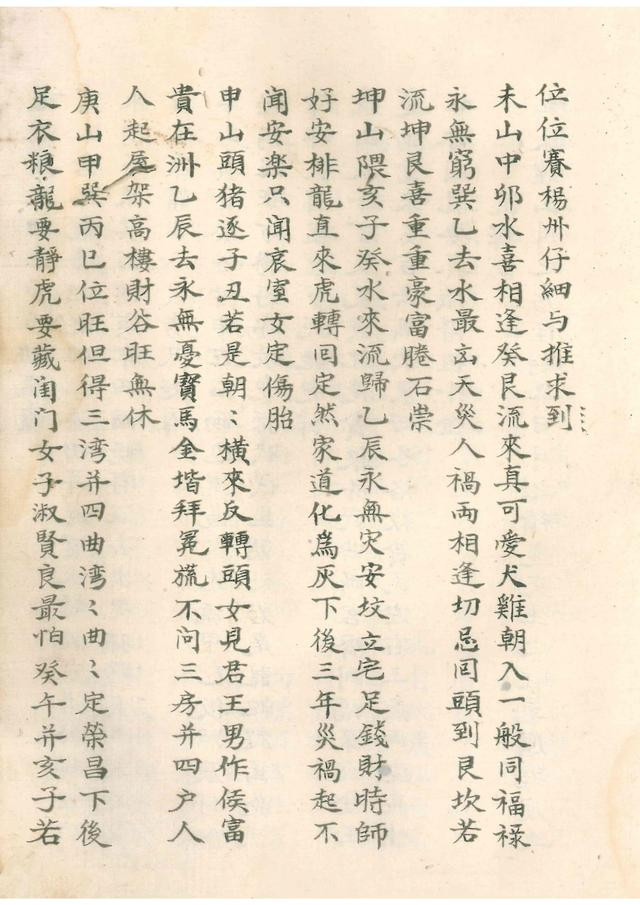 位位賽楊州仔細与推求到
未山中卯水喜相逢癸艮流來真可愛犬雞朝入一般同福祿
永無窮巽乙去水最立天災人禍両相逢切忌囘頭到艮坎若
流坤艮喜重重豪富勝石崇
坤山隈亥子癸水來流歸乙辰永無灾安坟立宅足錢財時師
好安排龍直來虎轉囘定然家道化為灰下後三年災禍起不
聞安楽只聞哀室女定傷胎
申山頭猪逐子丑若是朝〻橫來反轉頭女見君王男作侯富
貴在洲乙辰去永無憂寳馬金堦拜冕旒不问三房并四户人
人起屋架高樓財谷旺無休
庚山甲巽丙巳位旺但得三湾并四曲湾〻曲〻定榮昌下後
足衣粮龍要靜虎要藏闺门女子淑賢良最怕癸午并亥子若